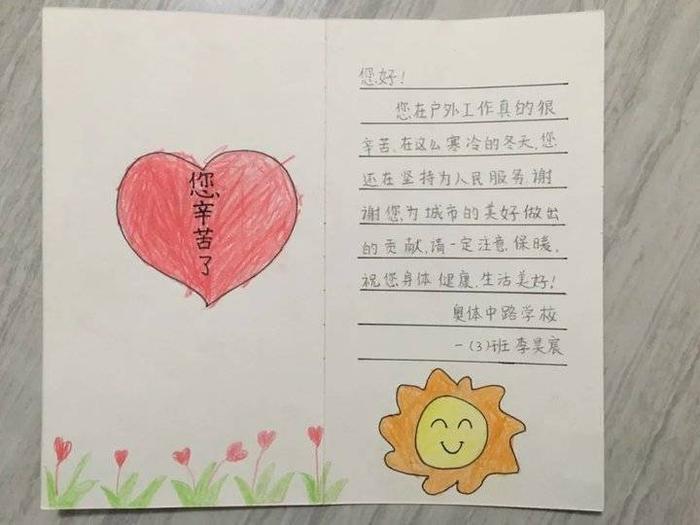 您辛苦了
您好!
您在户外工作真的很
辛苦,在这么寒冷的冬天,您
还在坚持为人民服务,谢
谢您,为城市的美好做出
的贡献,请一定注意保暖,
祝您身体健康,生活美好!
奥体中路学校
一(3)班李昊宸